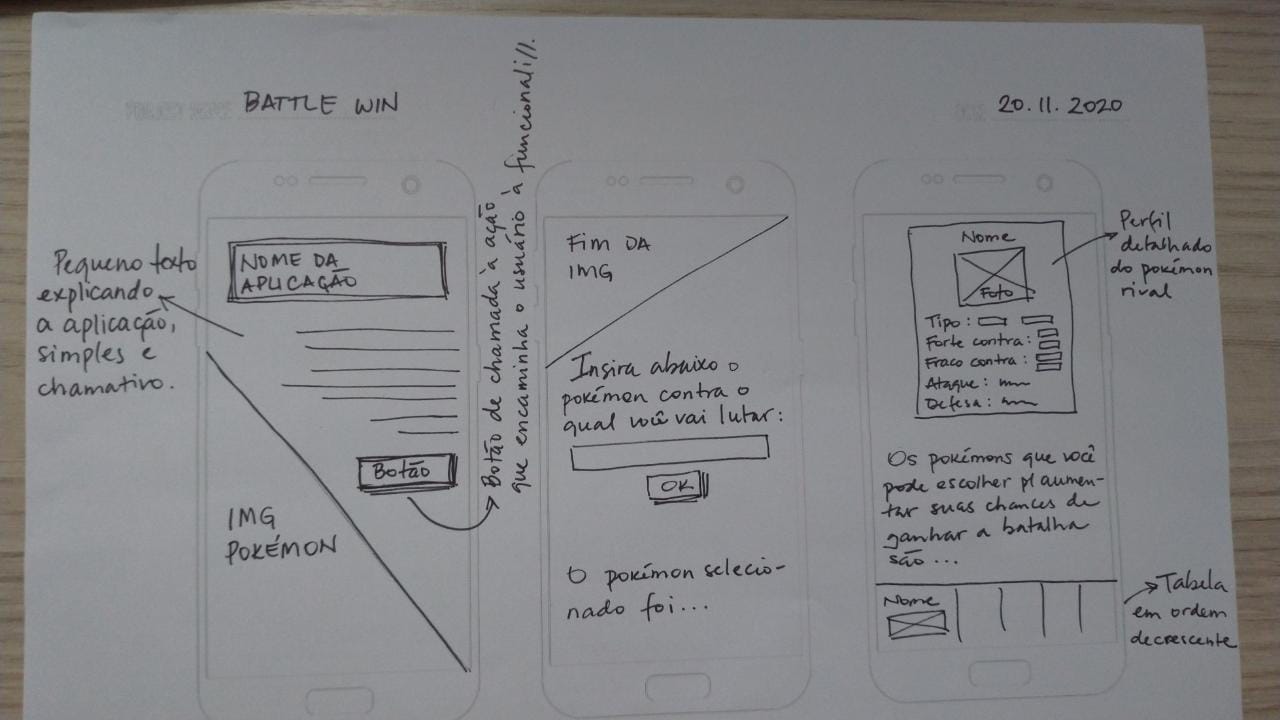 BATTLE WIN
20.11.2020
Pequeno texto
explicando
a aplicação,
simples e
chamativo.
NOME DA
APLICAÇÃO
Botão
IMG
POKÉMON
Botão de chamada à ação
que encaminha o usuário à funcionali//.
FIM DA
IMG
Insira abaixo o
pokémon contra o
qual você vai lutar:
OK
O pokémon selecio-
nado foi...
Nome
Foto
Tipo:
Forte contra:
Fraco contra:
Ataque:
Defesa:
Perfil
detalhado
do pokémon
rival
Os pokémons que você
pode escolher p/ aumen-
tar suas chances de
ganhar a batalha
são...
Nome
Tabela
em ordem
decrescente